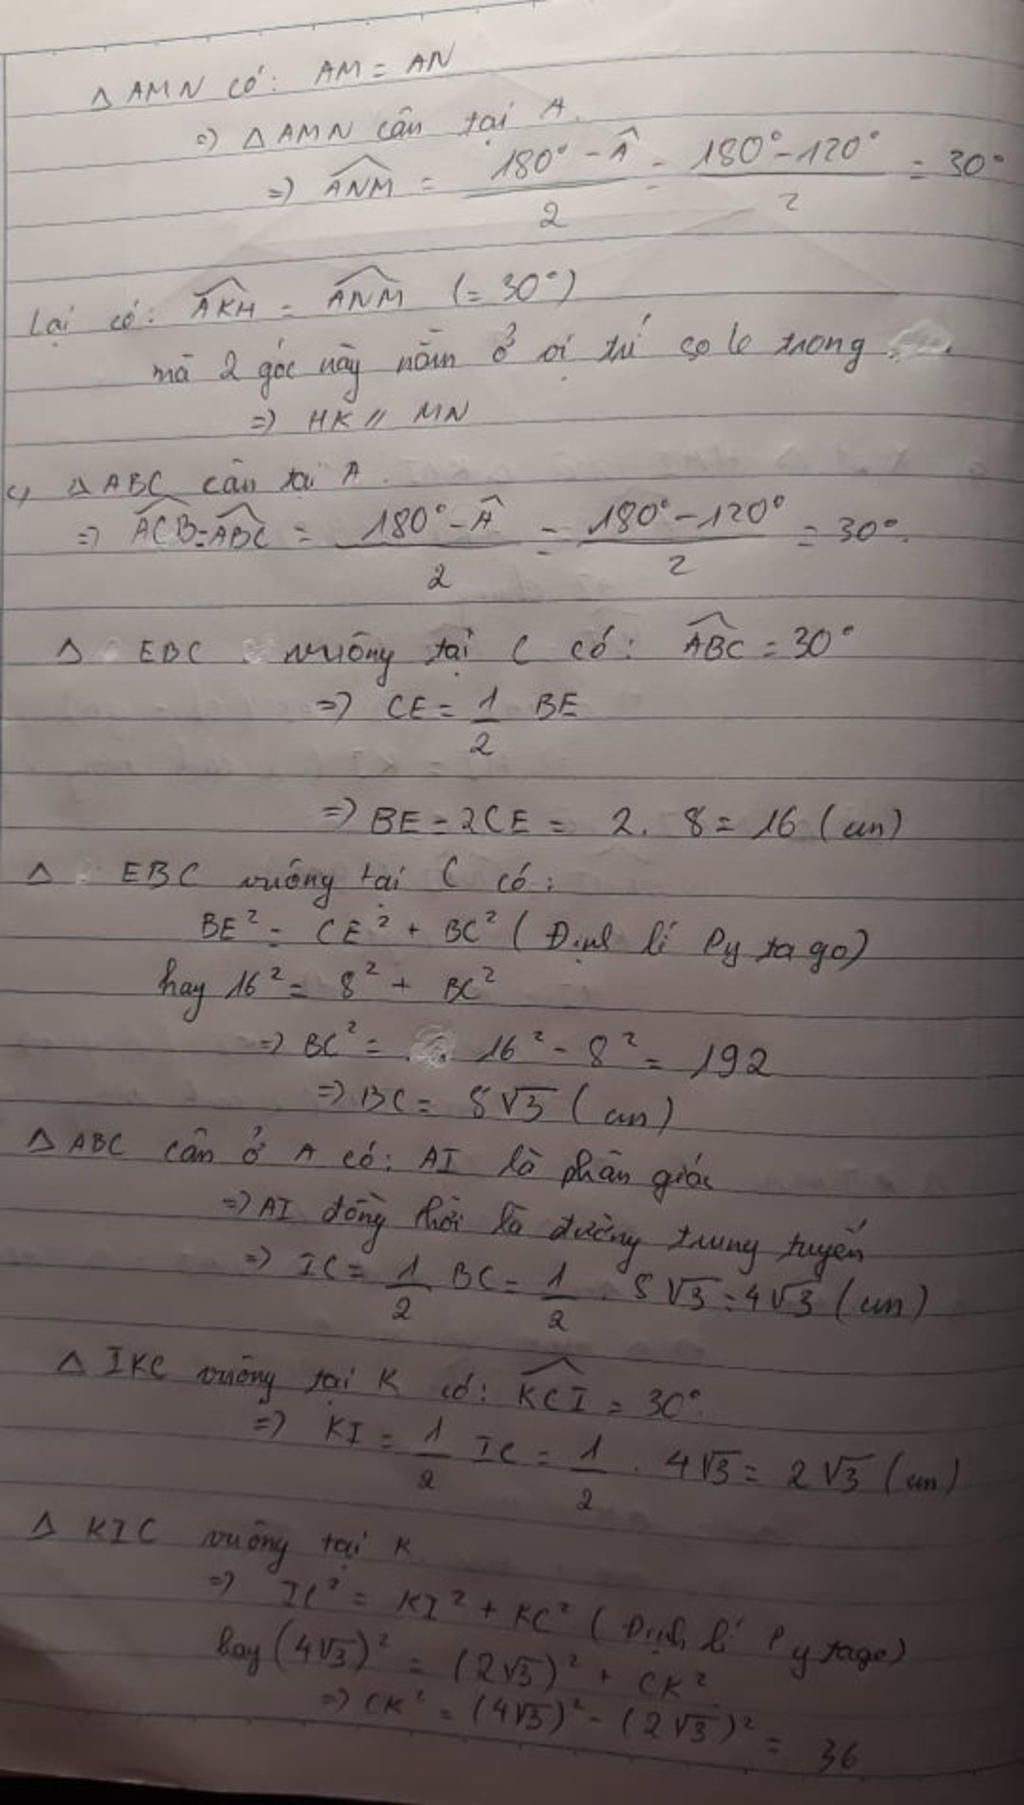 Δ AMN có: AM = AN
=> Δ AMN cân tại A.
=> \widehat{ANM} = \frac{180° - \widehat{A}}{2} = \frac{180° - 120°}{2} = 30°
Lại có: \widehat{AKH} = \widehat{ANM} (= 30°)
mà 2 góc này nằm ở vị trí so le trong
=> HK // MN
c, Δ ABC cân tại A.
=> \widehat{ACB} = \widehat{ABC} = \frac{180° - \widehat{A}}{2} = \frac{180° - 120°}{2} = 30°.
Δ EBC vuông tại C có: \widehat{ABC} = 30°
=> CE = \frac{1}{2} BE
=> BE = 2CE = 2. 8 = 16 (cm)
Δ EBC vuông tại C có:
BE² = CE² + BC² (Định lí Py ta go)
hay 16² = 8² + BC²
=> BC² = 16² - 8² = 192
=> BC = 8√3 (cm)
Δ ABC cân ở A có: AI là phân giác
=> AI đồng thời là đường trung tuyến
=> IC = \frac{1}{2} BC = \frac{1}{2} . 8√3 = 4√3 (cm)
Δ IKC vuông tại K có: \widehat{KCI} = 30°
=> KI = \frac{1}{2} IC = \frac{1}{2} . 4√3 = 2√3 (cm)
Δ KIC vuông tại K
=> IC² = KI² + KC² (Định lí Py tago)
hay (4√3)² = (2√3)² + CK²
=> CK² = (4√3)² - (2√3)² = 36